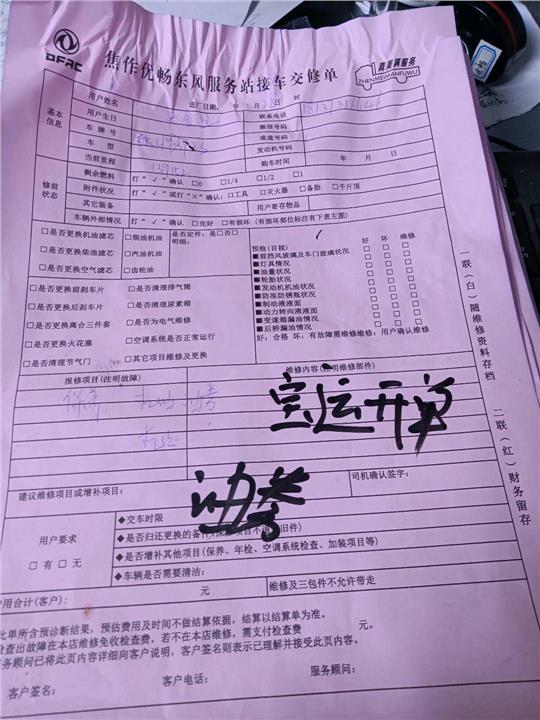 DFAC
焦作优畅东风服务站接车交修单
真美满服务
ZHENMEIMANFUWU
基本信息
用户姓名 进厂日期： 年 月 日 时
用户生日 联系电话
车牌号 微信号码
车型 底盘号码
当前里程 发动机号码
购车时间 年 月 日
修前状态
剩余燃料 打“√”确认 □0 □1/4 □1/2 □1
附件状况 打“√”或打“×”确认：□工具 □灭火器 □备胎 □千斤顶
其它装备 用户寄存物品
车辆外部情况 打“√”确认 □完好 □有损坏（有损坏部位标注有下表左图）
□是否更换机油滤芯 □柴油机油 是否定件：是□否□
明细：
□是否更换柴油滤芯 □汽油机油
□是否更换空气滤芯 □齿轮油
□是否更换前刹车片 □是否清理排气筒
□是否更换后刹车片 □是否清理尿素箱
□是否更换离合三件套 □是否为电气维修
□是否更换火花塞 □空调系统是否正常运行
□是否清理节气门 □其它项目维修及更换
预检（目视） 好 坏 维修
■前挡风玻璃及车门玻璃状况 □ □ □
■灯具情况 □ □ □
■油量状况 □ □ □
■轮胎状况 □ □ □
■发动机机油状况 □ □ □
■防冻防锈瓶状况 □ □ □
■制动液液面 □ □ □
■动力转向液液面 □ □ □
■变速箱漏油情况 □ □ □
■后桥漏油情况 □ □ □
好：合格 坏：有故障需维修维修：用户确认维修
报修项目（注明故障） 维修内容（注明维修部件）
保养
宝运开单
建议维修项目或增补项目： 司机确认签字：
用户要求
□有 □无
◆交车时限
◆是否增补其他项目（保养、年检、空调系统检查、加装项目等）
◆车辆是否需要清洁：
费用合计（客户）： 元 维修及三包件不允许带走
此单所含预诊断结果，预估费用及时间不做结算依据，结算以结算单为准。
检查出故障在本店维修免收检查费，若不在本店维修，需支付检查费 元。
务顾问已将此页内容详细向客户说明，客户签名则表示已理解并接受此页内容。
客户签名： 客户电话： 服务顾问：
一联（白）随维修资料存档
二联（红）财务留存